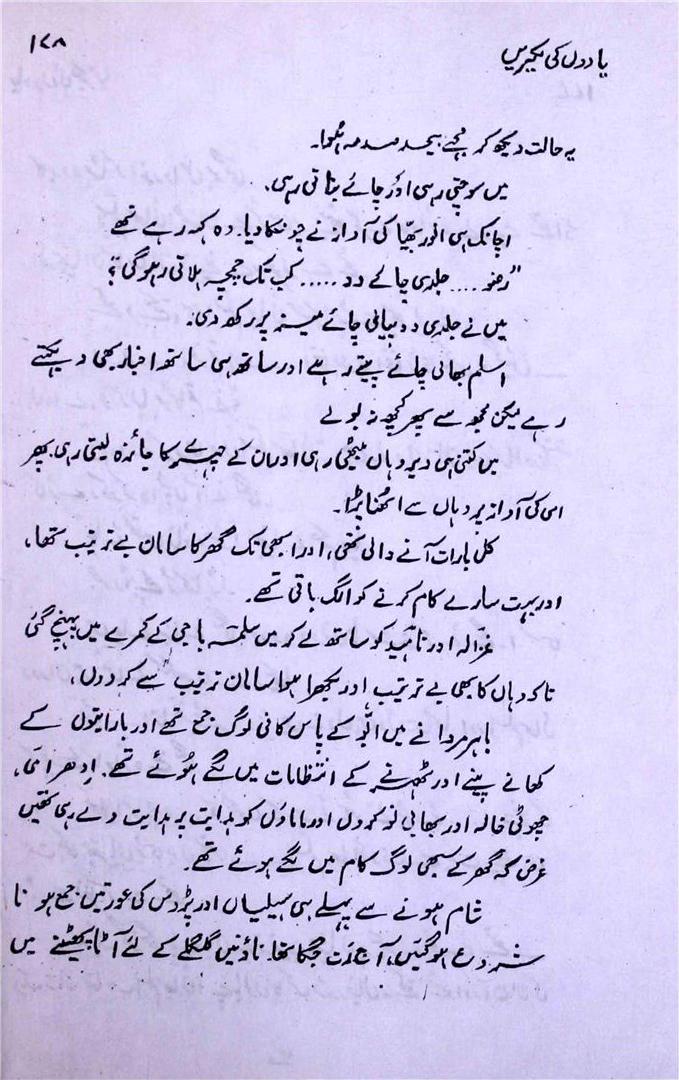 یادوں کی لکیریں
۱۷۸
یہ حالت دیکھ کر مجھے بیحد صدمہ ہُوا۔
میں سوچتی رہی اور چائے بناتی رہی۔
اچانک ہی انور بھیّا کی آواز نے چونکا دیا۔ وہ کہہ رہے تھے
"رضو .... جلدی چائے دو ..... کب تک چمچہ ہلاتی رہو گی؟
میں نے جلدی دو پیالی چائے میز پر رکھ دی۔
اسلم بھائی چائے پیتے رہے اور ساتھ ہی ساتھ اخبار بھی دیکھتے
رہے لیکن مجھ سے پھر کچھ نہ بولے
میں کتنی ہی دیر وہاں بیٹھی رہی اور ان کے چہرے کا جائزہ لیتی رہی۔ پھر
امی کی آواز پر وہاں سے اٹھنا پڑا۔
کل بارات آنے والی تھی، اور ابھی تک گھر کا سامان بے ترتیب تھا،
اور بہت سارے کام کرنے کو الگ باقی تھے۔
غزالہ اور ناہید کو ساتھ لے کر میں سلمہ باجی کے کمرے میں پہنچ گئی
تاکہ وہاں کا بھی بے ترتیب اور بکھرا ہوا سامان ترتیب سے کر دوں،
باہر مردانے میں ابّو کے پاس کافی لوگ جمع تھے اور باراتیوں کے
کھانے پینے اور ٹھہرنے کے انتظامات میں لگے ہوئے تھے۔ اِدھر امی،
چھوٹی خالہ اور بھابی نوکروں اور ماماؤں کو ہدایت پر ہدایت دے رہی تھیں
غرض کہ گھر کے سبھی لوگ کام میں لگے ہوئے تھے۔
شام ہونے سے پہلے ہی سہیلیاں اور پڑوس کی عورتیں جمع ہونا
شروع ہو گئیں، آج رَت جگا تھا۔ ناؤنیں گلگلے کے لئے آٹا پھینٹنے میں